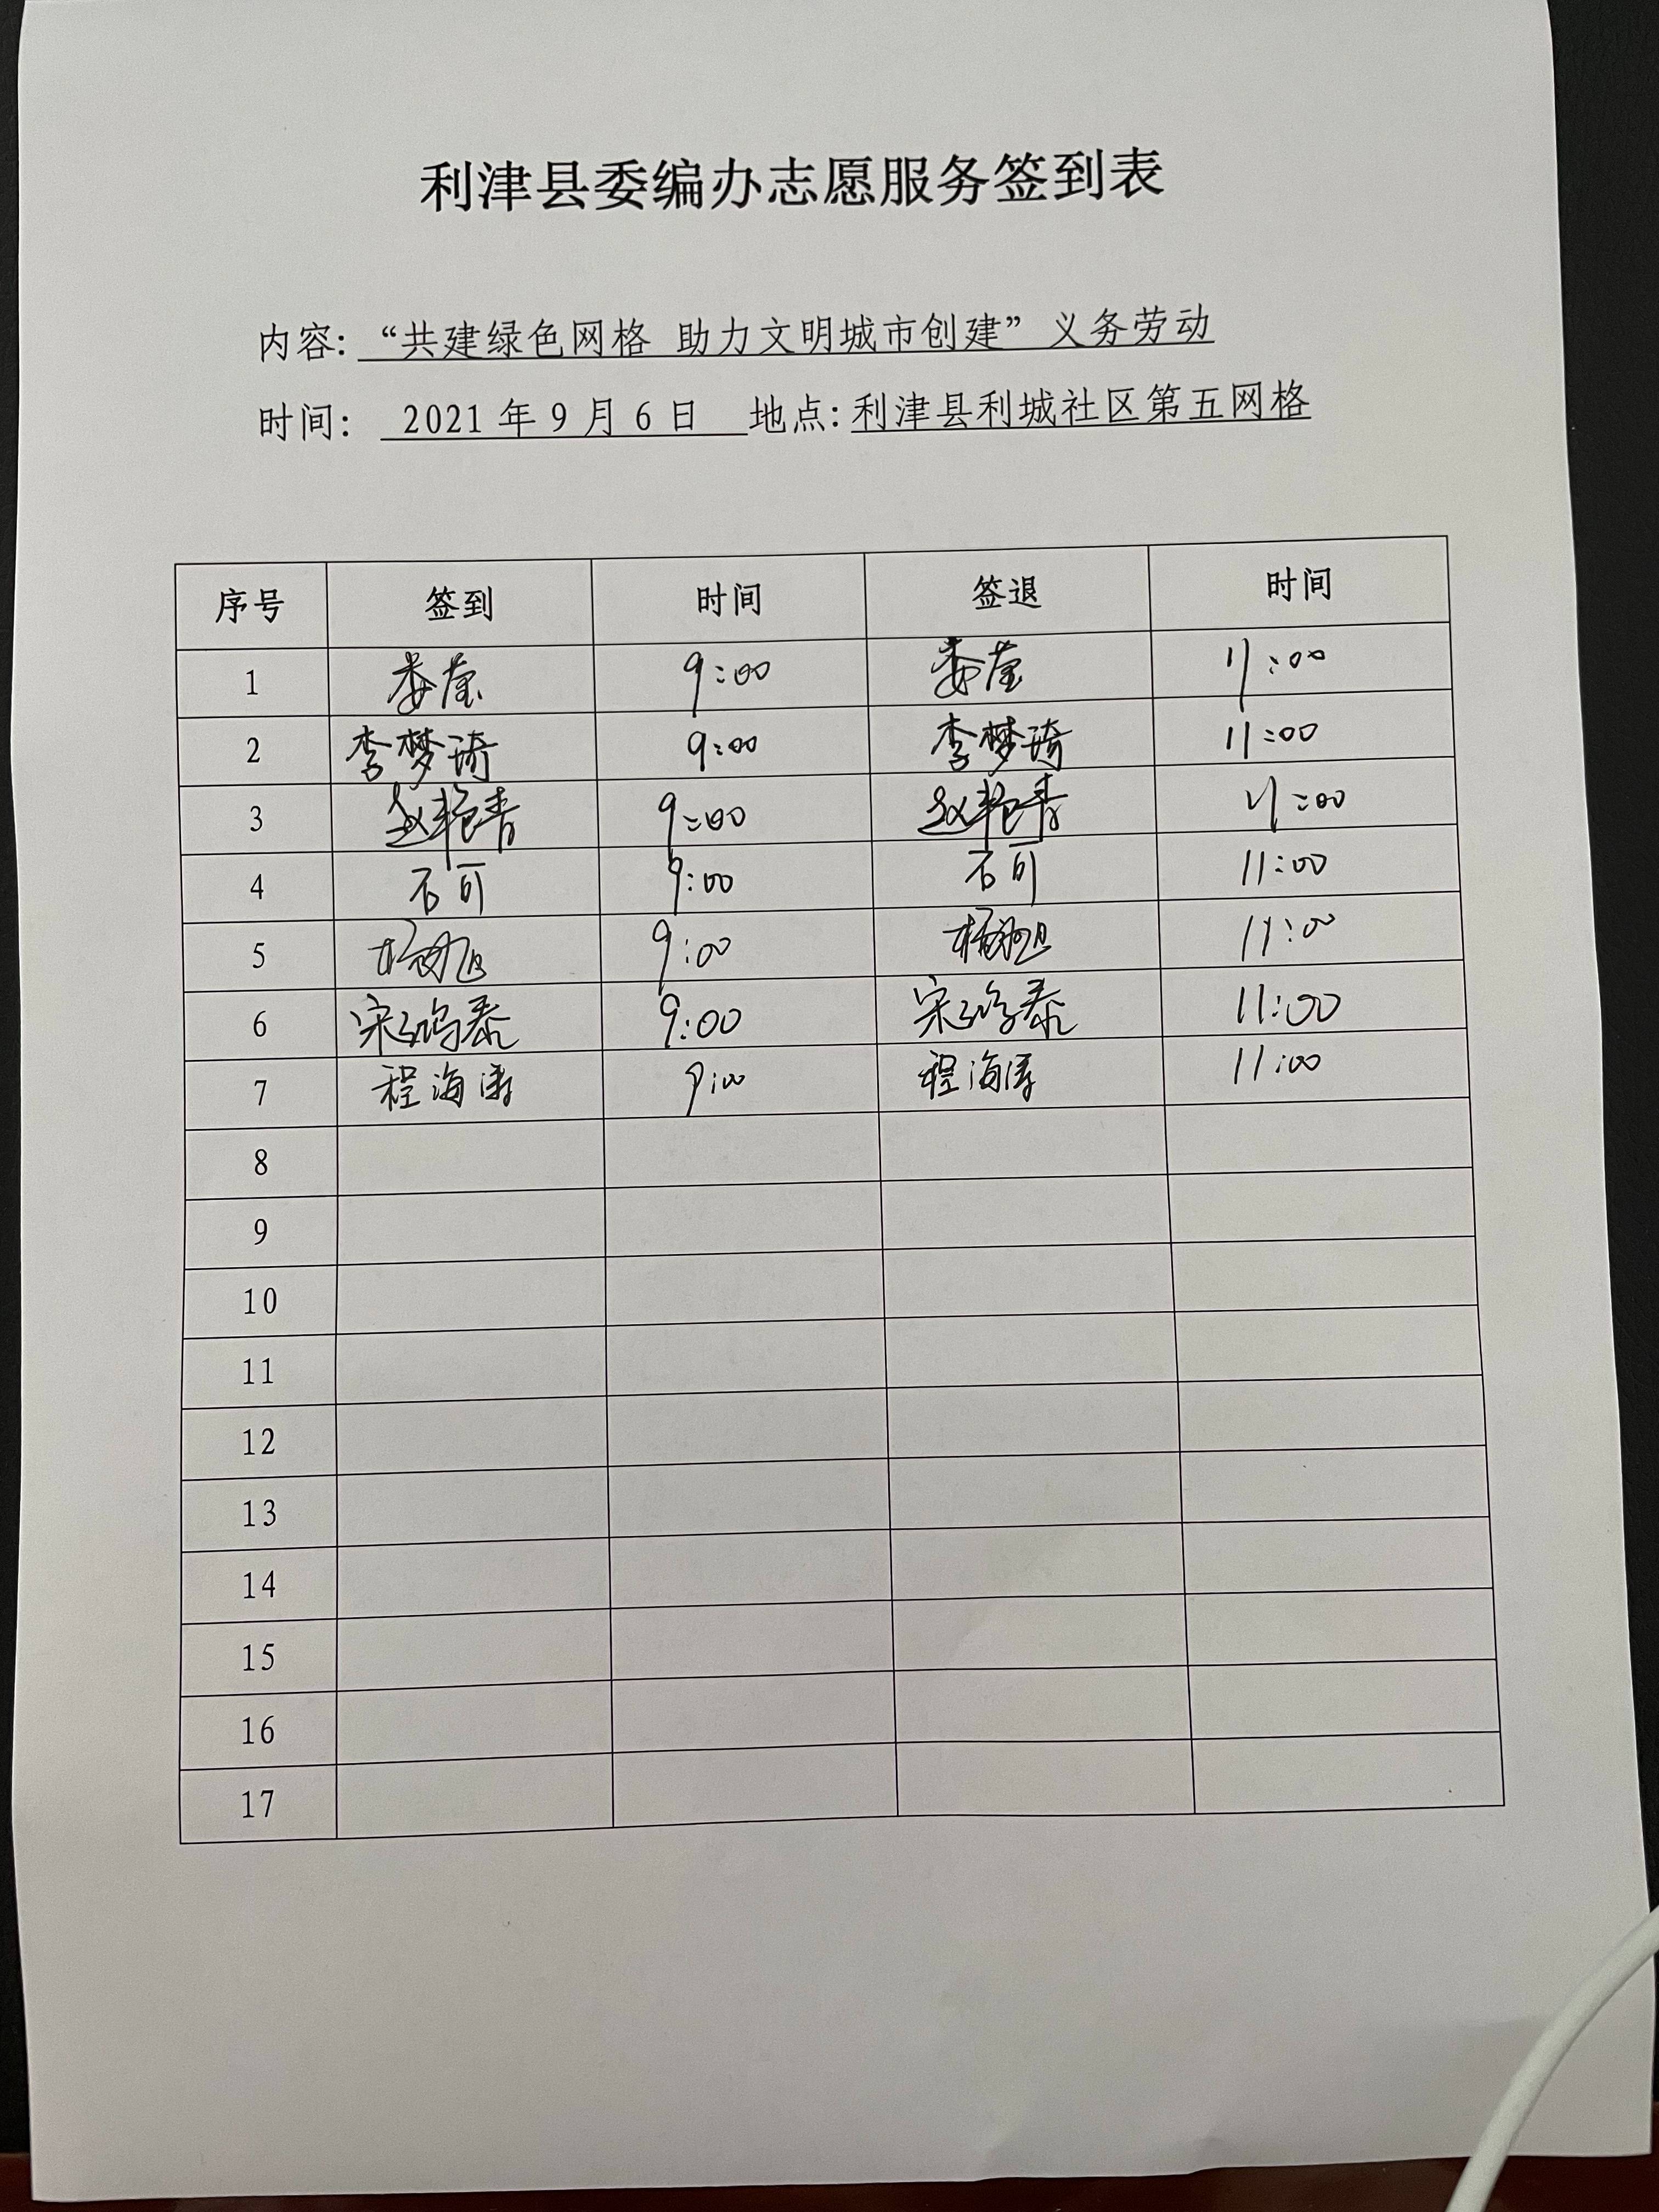 利津县委编办志愿服务签到表
内容: “共建绿色网格 助力文明城市创建” 义务劳动
时间: 2021年9月6日 地点: 利津县利城社区第五网格
序号 签到 时间 签退 时间
1 9:00 11:00
2 李梦琦 9:00 李梦琦 11:00
3 赵艳青 9:00 赵艳青 11:00
4 石可 9:00 石可 11:00
5 9:00 11:00
6 宋鸿泰 9:00 宋鸿泰 11:00
7 程海涛 9:00 程海涛 11:00
8
9
10
11
12
13
14
15
16
17